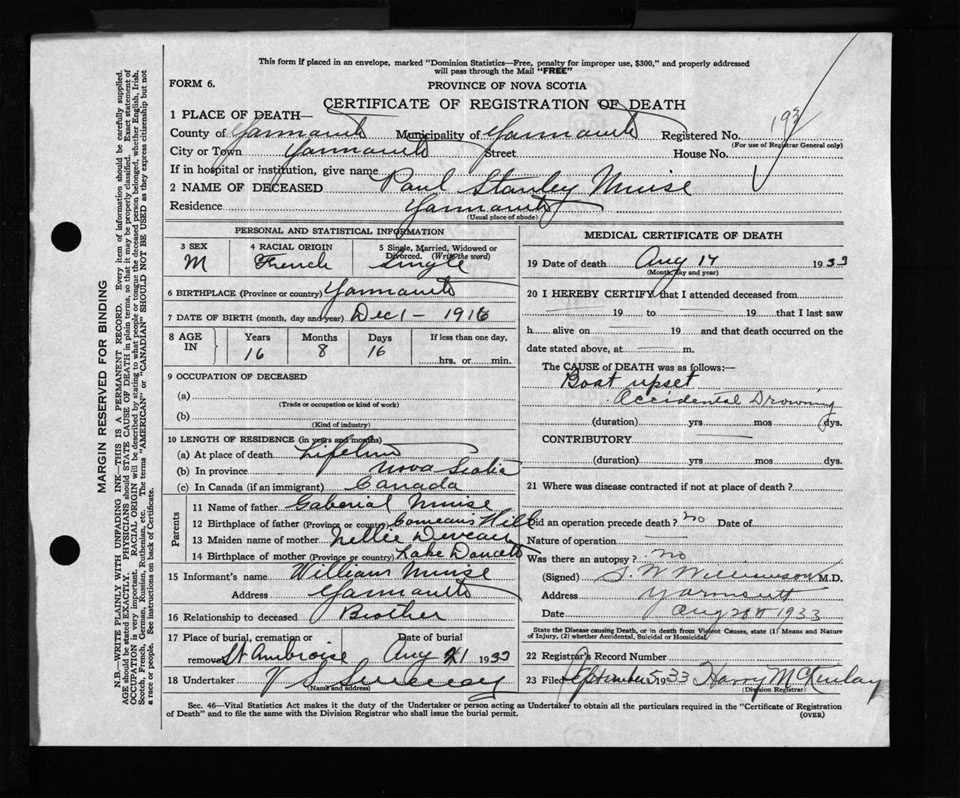 This form if placed in an envelope, marked "Dominion Statistics—Free, penalty for improper use, $300," and properly addressed
will pass through the Mail "FREE"
FORM 6.
PROVINCE OF NOVA SCOTIA
CERTIFICATE OF REGISTRATION OF DEATH
1 PLACE OF DEATH—
County of Yarmouth Municipality of Yarmouth Registered No. 193
(For use of Registrar General only)
City or Town Yarmouth Street House No.
If in hospital or institution, give name
2 NAME OF DECEASED Paul Stanley Muise
Residence Yarmouth
(Usual place of abode)
PERSONAL AND STATISTICAL INFORMATION
3 SEX 4 RACIAL ORIGIN 5 Single, Married, Widowed or
Divorced. (Write the word)
M French Single
6 BIRTHPLACE (Province or country) Yarmouth
7 DATE OF BIRTH (month, day and year) Dec 1 - 1916
8 AGE IN Years Months Days If less than one day,
16 8 16 hrs. or min.
9 OCCUPATION OF DECEASED
(a)
(Trade or occupation or kind of work)
(b)
(Kind of industry)
10 LENGTH OF RESIDENCE (in years and months)
(a) At place of death Lifetime
(b) In province Nova Scotia
(c) In Canada (if an immigrant) Canada
Parents
11 Name of father Gaberial Muise
12 Birthplace of father (Province or country) Comeaus Hill
13 Maiden name of mother Nellie Deveau
14 Birthplace of mother (Province or country) Lake Doucette
15 Informant's name William Muise
Address Yarmouth
16 Relationship to deceased Brother
17 Place of burial, cremation or Date of burial
removal St Ambroise Aug 21 1933
18 Undertaker V S Sweeney
(Name and address)
MEDICAL CERTIFICATE OF DEATH
19 Date of death Aug 17 1933
(Month, day and year)
20 I HEREBY CERTIFY that I attended deceased from
19 to 19 that I last saw
h alive on 19 and that death occurred on the
date stated above, at m.
The CAUSE of DEATH was as follows:—
Boat upset
Accidental Drowning
(duration) yrs mos dys.
CONTRIBUTORY
(duration) yrs. mos dys.
21 Where was disease contracted if not at place of death?
Did an operation precede death? no Date of
Nature of operation
Was there an autopsy? no
(Signed) S. W. Williamson M.D.
Address Yarmouth
Date Aug 28th 1933
State the Disease causing Death, or in death from Violent Causes, state (1) Means and Nature
of Injury, (2) whether Accidental, Suicidal or Homicidal.
22 Registrar's Record Number
23 Filed September 5 1933 Harry McKinlay
(Division Registrar)
Sec. 46—Vital Statistics Act makes it the duty of the Undertaker or person acting as Undertaker to obtain all the particulars required in the "Certificate of Registration
of Death" and to file the same with the Division Registrar who shall issue the burial permit.
(OVER)
MARGIN RESERVED FOR BINDING
N.B.—WRITE PLAINLY WITH UNFADING INK—THIS IS A PERMANENT RECORD. Every item of information should be carefully supplied.
AGE should be stated EXACTLY. PHYSICIANS should STATE CAUSE OF DEATH in plain terms, so that it may be properly classified. Exact statement of
OCCUPATION is very important. RACIAL ORIGIN will be described by stating to what people or tongue the deceased person belonged, whether English, Irish,
Scotch, French, German, Russian, Ruthenian, etc. The terms "AMERICAN" or "CANADIAN" SHOULD NOT BE USED as they express citizenship but not
a race or people. See instructions on back of Certificate.